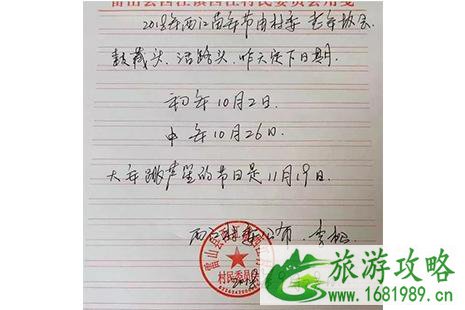 雷山县西江镇西江村民委员会用笺
2018年西江苗年节由村委、老年协会、
鼓藏头、活路头、昨天定下日期.
初年10月2日.
中年10月26日.
大年跳芦笙的节日是11月19日.
西江村委公布
村民委员会
旅游攻略
www.1681989.cn